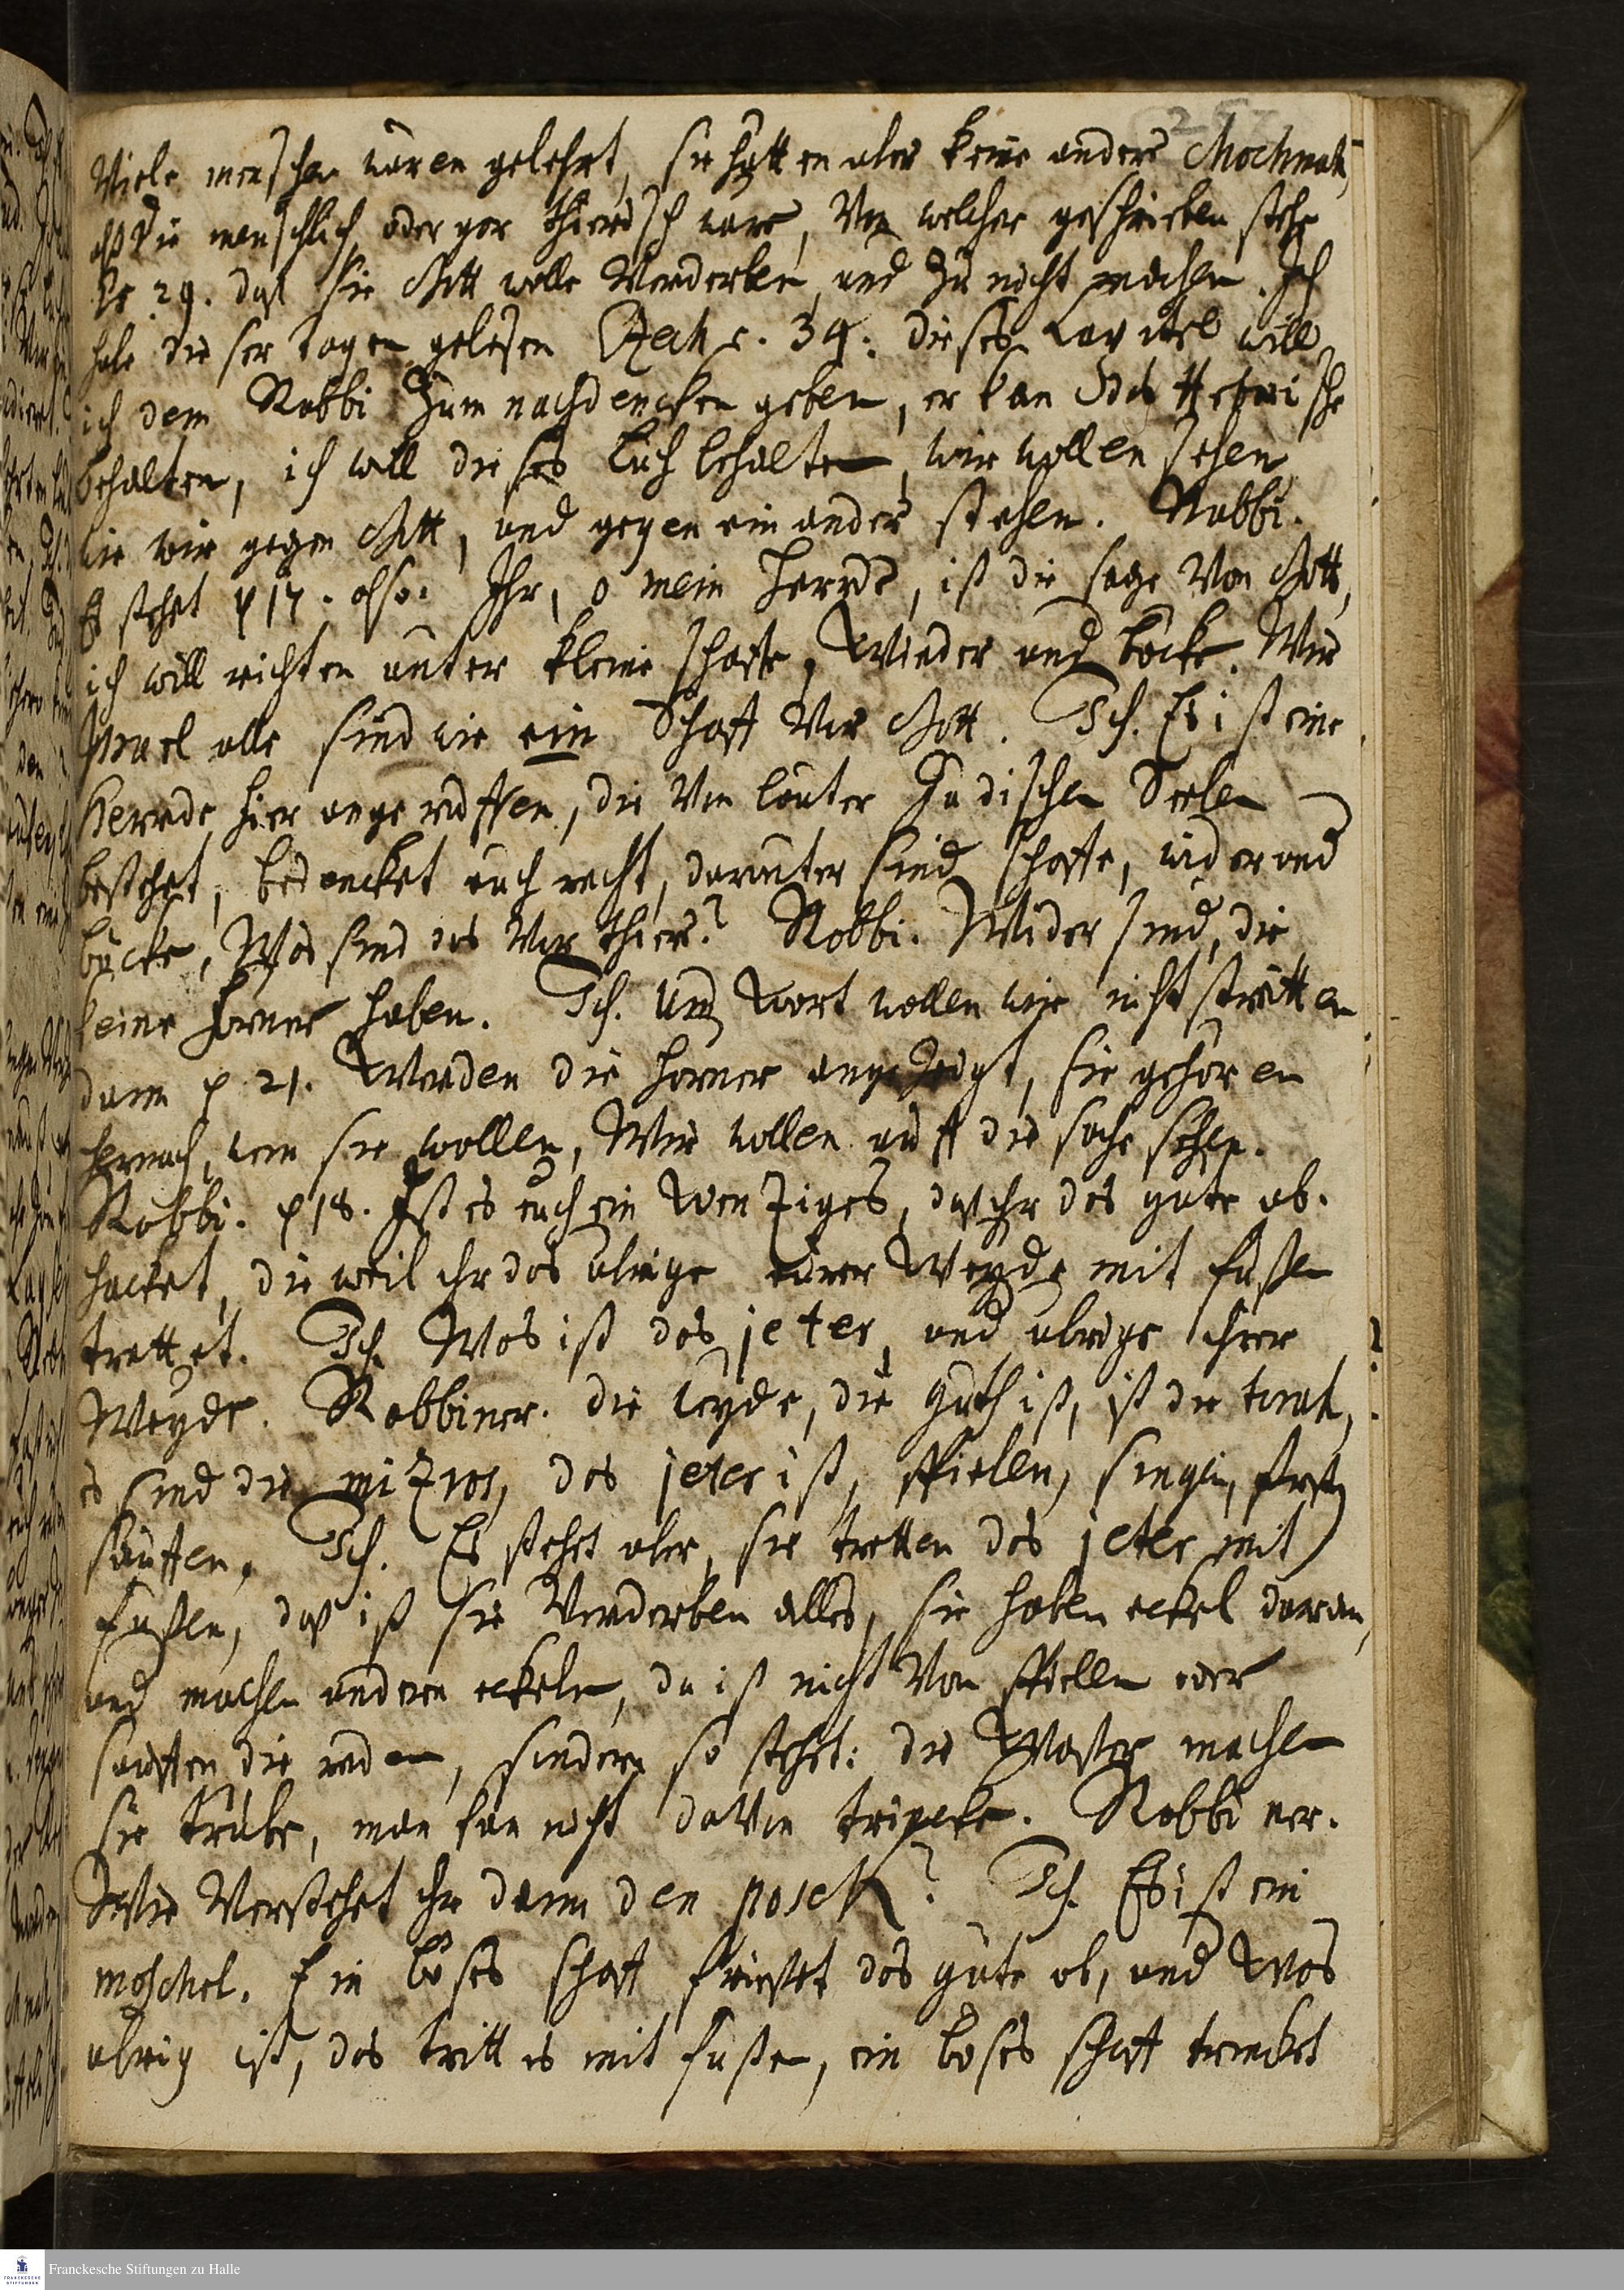 Viele menschen waren gelehrt, sie hatten aber keine andere Chochmah,
alß die menschlich, oder gar thierisch ware, Von welcher geschrieben stehe
Js 29. daß sie Gott wolle Verderben, und zu nicht machen. Ich
habe dieser tagen gelesen Ezech c. 34. dieses Capitel will
ich dem Rabbi zum nachdencken geben, er kan das Hebreische
behalten, ich will dieses buch behalten, wir wollen sehen
wie wir gegen Gott, und gegen einander stehen. Rabbi.
Es stehet p 17. also. Ihr, o mein Heerde, ist die sage Von Gott,
ich will richten unter kleine schaffe, Wieder und böcke. Wir
Israel alle sind wie ein Schaff Vor Gott. Ich. Es ist eine
Heerde hier angeruffen, die Von lauter Jüdischen Seelen
bestehet, bedencket euch recht, darunter sind schaffe, wider und
böcke, Was sind das Vor thiere? Rabbi. Wider sind, die
keine hörner haben. Ich. Um Wort wollen wir nicht stritten
dann p 21. Werden die hörner angezeigt, sie gehören
hernach, wem sie wollen, Wir wollen auff die sache sehen.
Rabbi. p 18. Ist es euch ein Weniges, daß ihr das gute ab-
hacket, die weil ihr das übrige eurer Weyde mit füßen
trettet. Ich. Was ist das jeter, und übrige ihrer
Weyde. Rabbiner. die weyde, die guth ist, ist die torah,
es sind die mizvos, das jeter ist, spielen, singen,
sauffen. Ich. Es stehet aber, sie tretten das jeter mit
füßen, daß ist sie Verderben alles, sie haben eckel daran,
und machen anderen eckeln, da ist nicht Von spielen oder
sauffen die reden, sondern so stehet: die Wasser machen
sie trübe, man kan nicht davon trincken. Rabbiner.
Wie Verstehet ihr dann den posek? Ich. Es ist ein
moschel. Ein böses schaff frisset das gute ab, und Was
übrig ist, das tritt es mit füßen, ein böses schaff trincket
Franckesche Stiftungen zu Halle